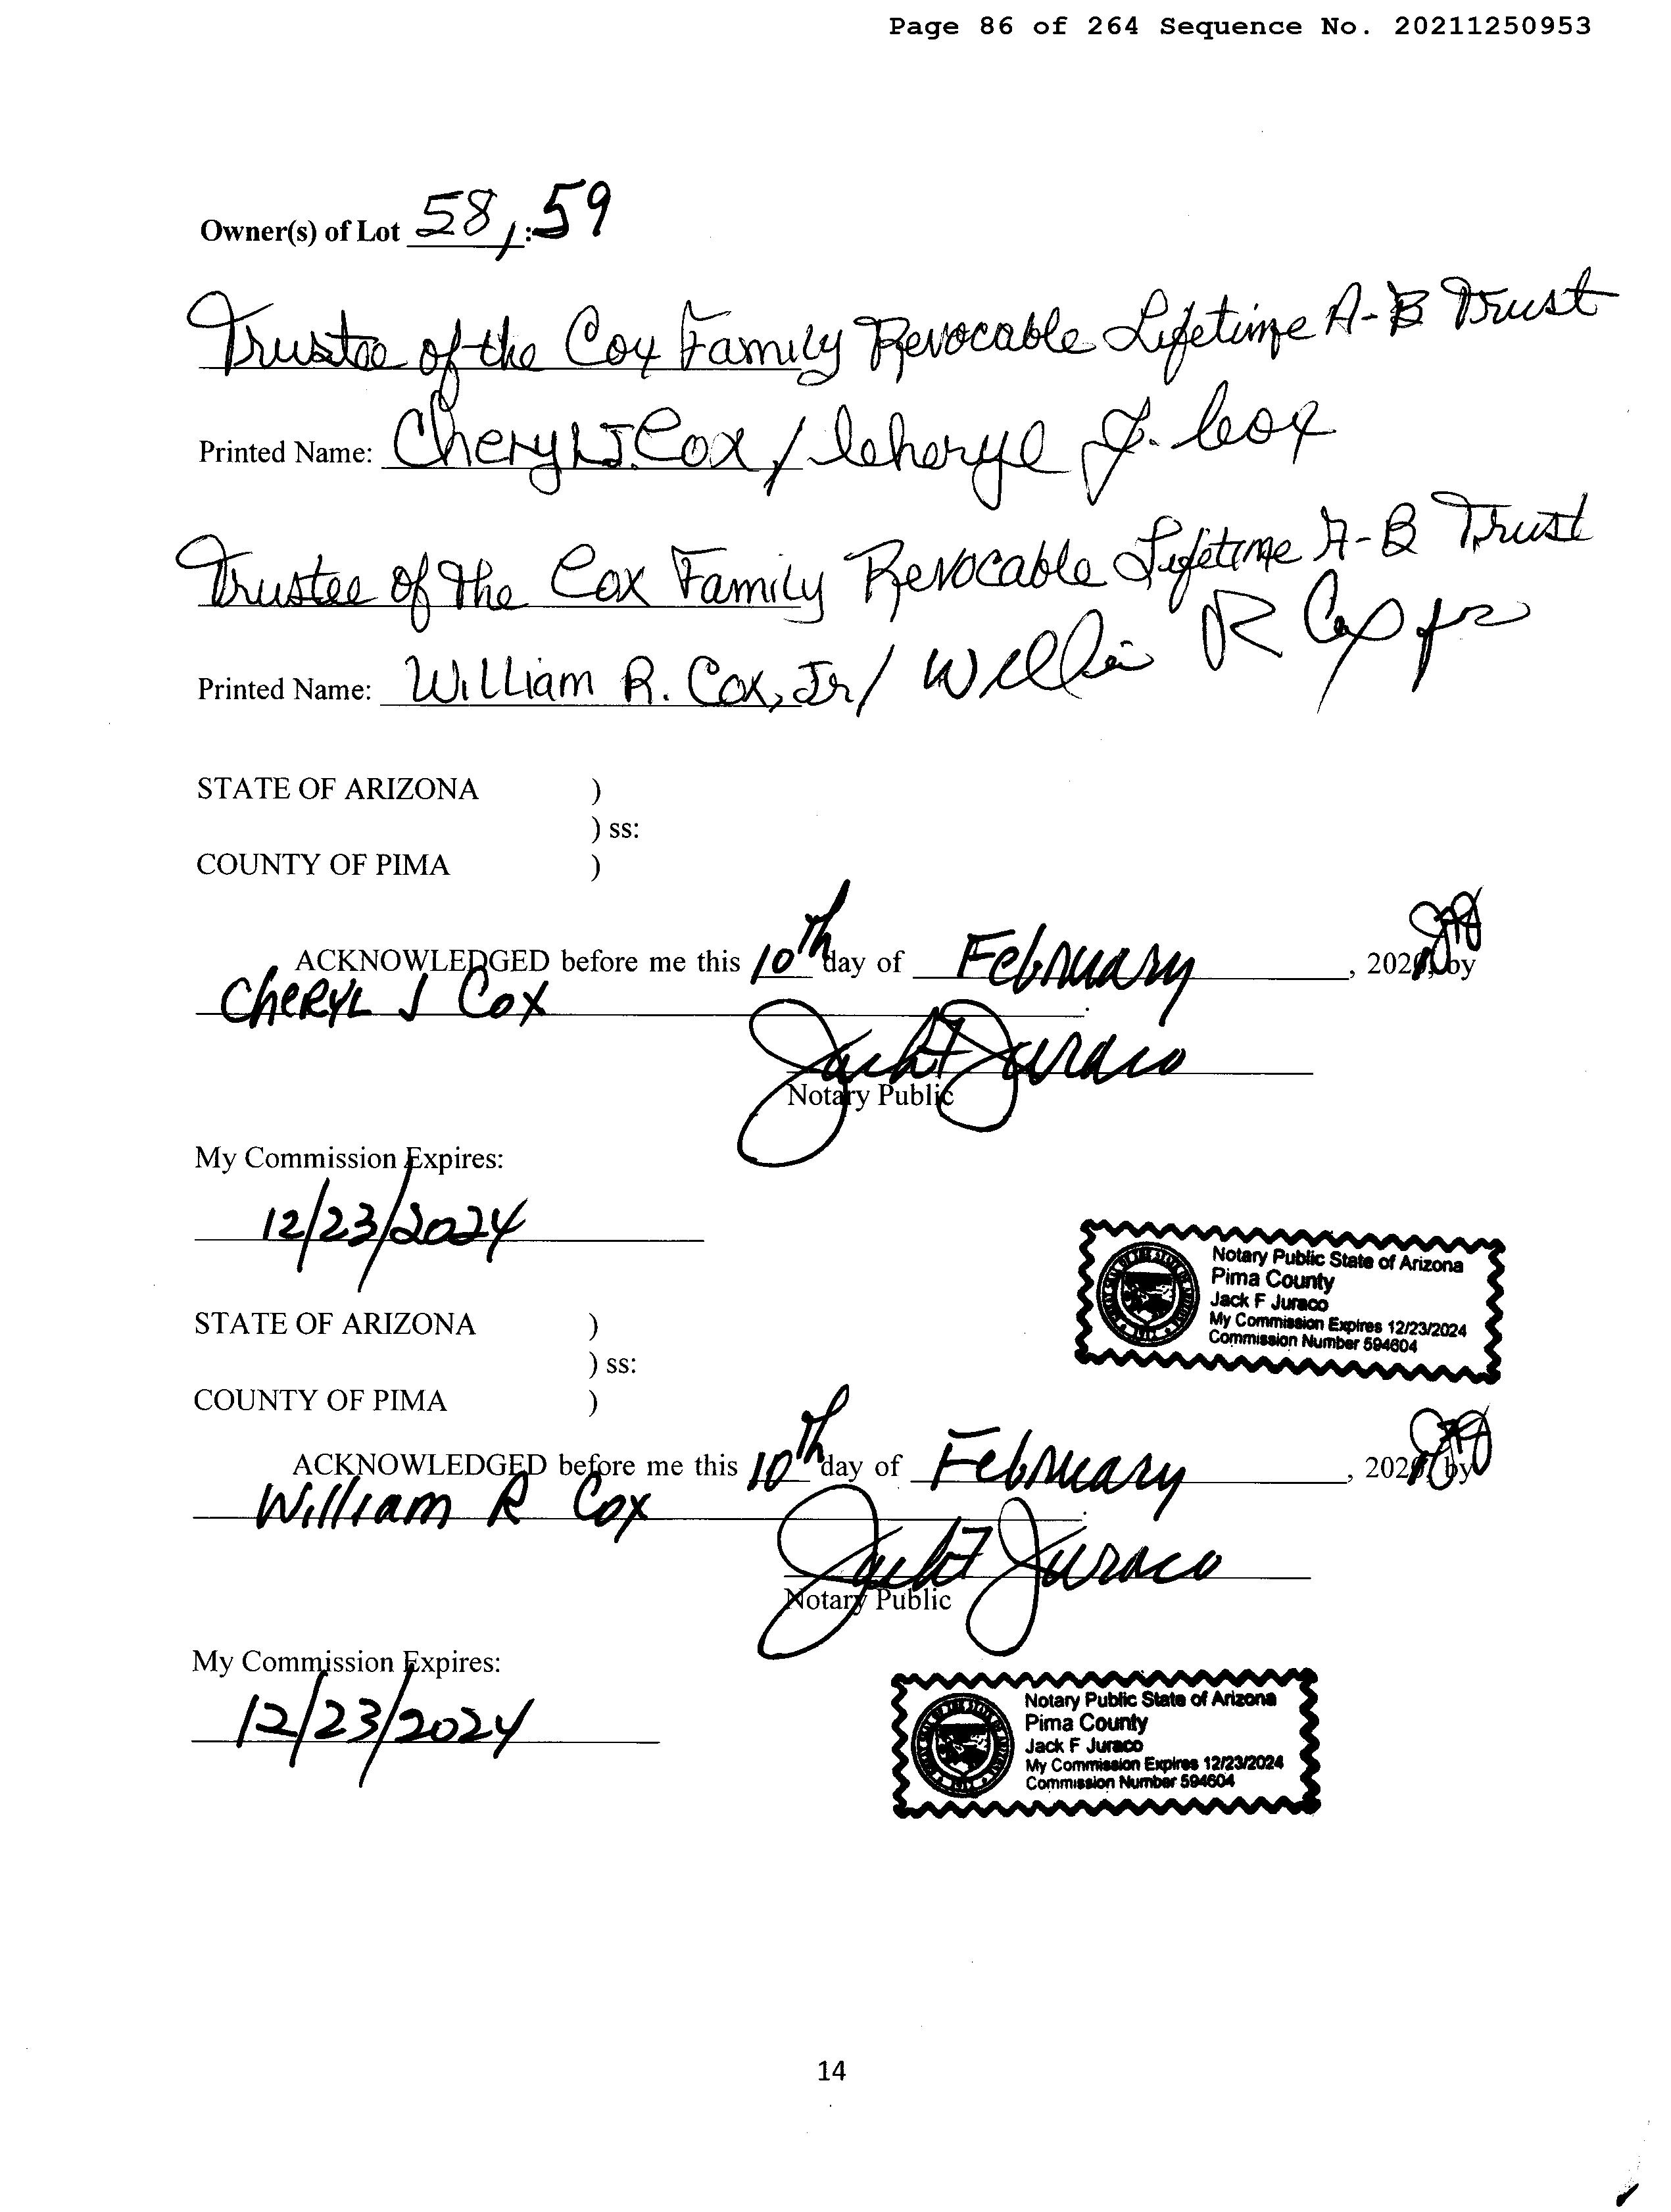 Page 86 of 264 Sequence No. 20211250953
Owner(s) of Lot 58, : 59
Trustee of the Cox Family Revocable Lifetime A-B Trust
Printed Name: Cheryl J. Cox / Cheryl J. Cox
Trustee of the Cox Family Revocable Lifetime A-B Trust
Printed Name: William R. Cox, Jr / William R Cox Jr
STATE OF ARIZONA )
) ss:
COUNTY OF PIMA )
ACKNOWLEDGED before me this 10th day of February, 202 by
Cheryl J Cox.
Jack F Juraco
Notary Public
My Commission Expires:
12/23/2024
Notary Public State of Arizona
Pima County
Jack F Juraco
My Commission Expires 12/23/2024
Commission Number 594604
STATE OF ARIZONA )
) ss:
COUNTY OF PIMA )
ACKNOWLEDGED before me this 10th day of February, 202 by
William R Cox.
Jack F Juraco
Notary Public
My Commission Expires:
12/23/2024
Notary Public State of Arizona
Pima County
Jack F Juraco
My Commission Expires 12/23/2024
Commission Number 594604
14